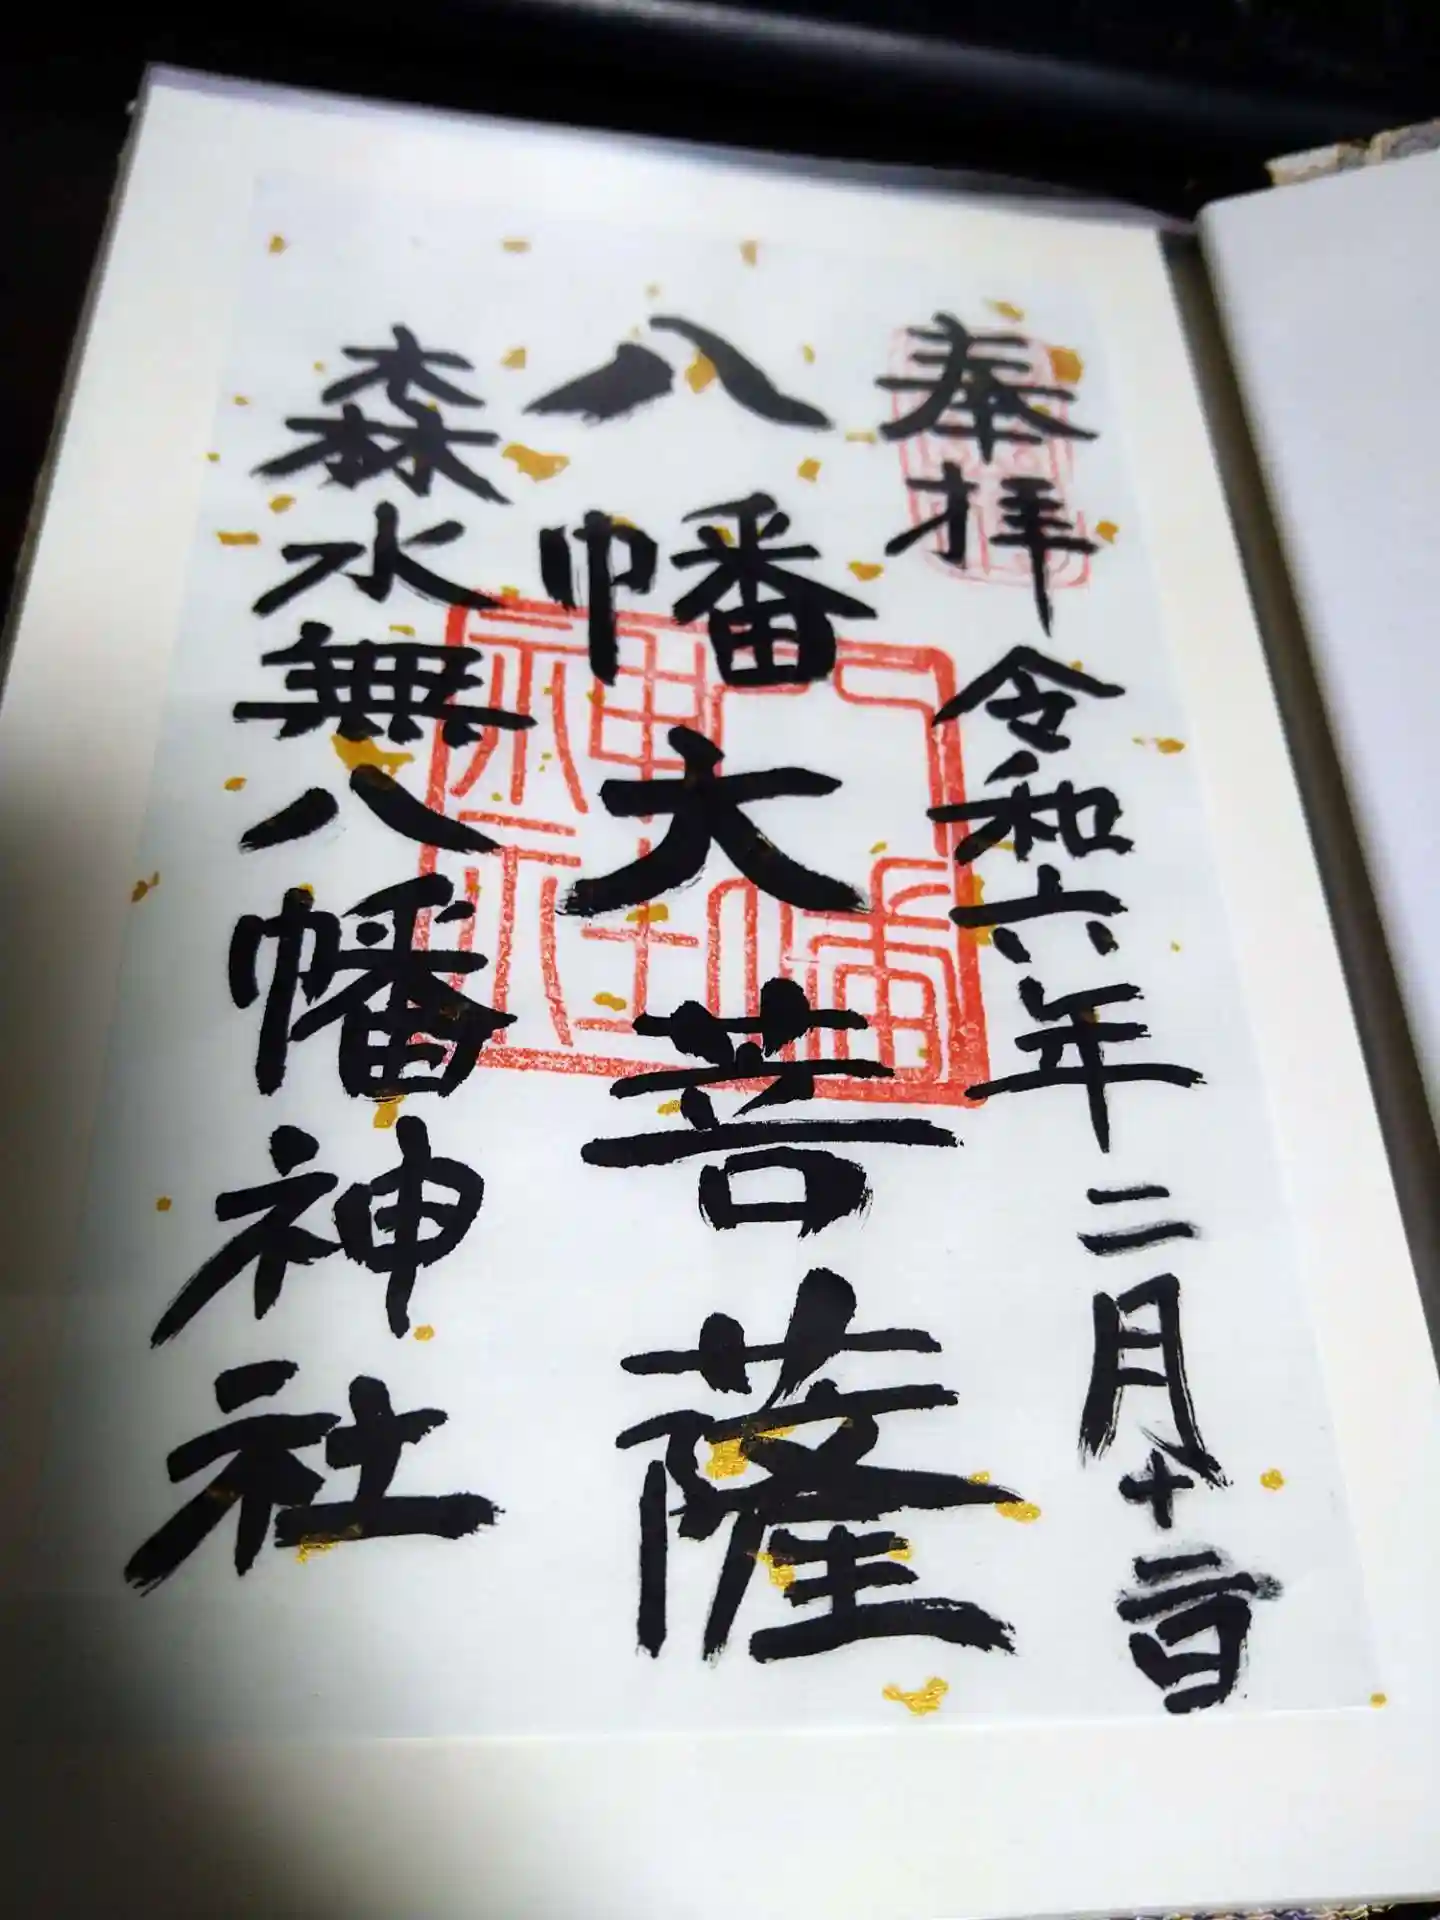 奉拝
令和六年二月十二日
八幡大菩薩
森水無八幡神社
八幡神社